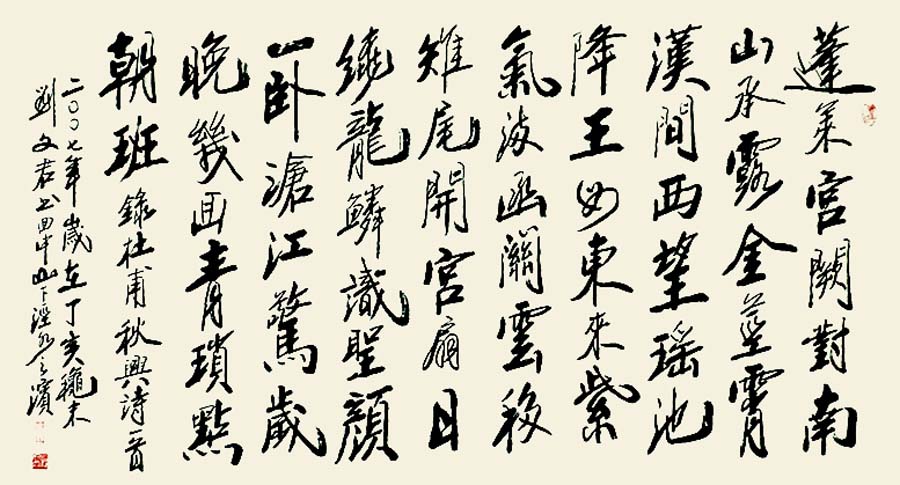 蓬莱宮闕對南
山承露金莖霄
漢間西望瑶池
降王母東來紫
氣滿函關雲移
雉尾開宮扇日
繞龍鱗識聖顔
一卧滄江驚歲
晚幾回青瑣點
朝班 錄杜甫秋興詩一首
二〇〇七年歲在丁亥龝末
劉文君书山下之濱